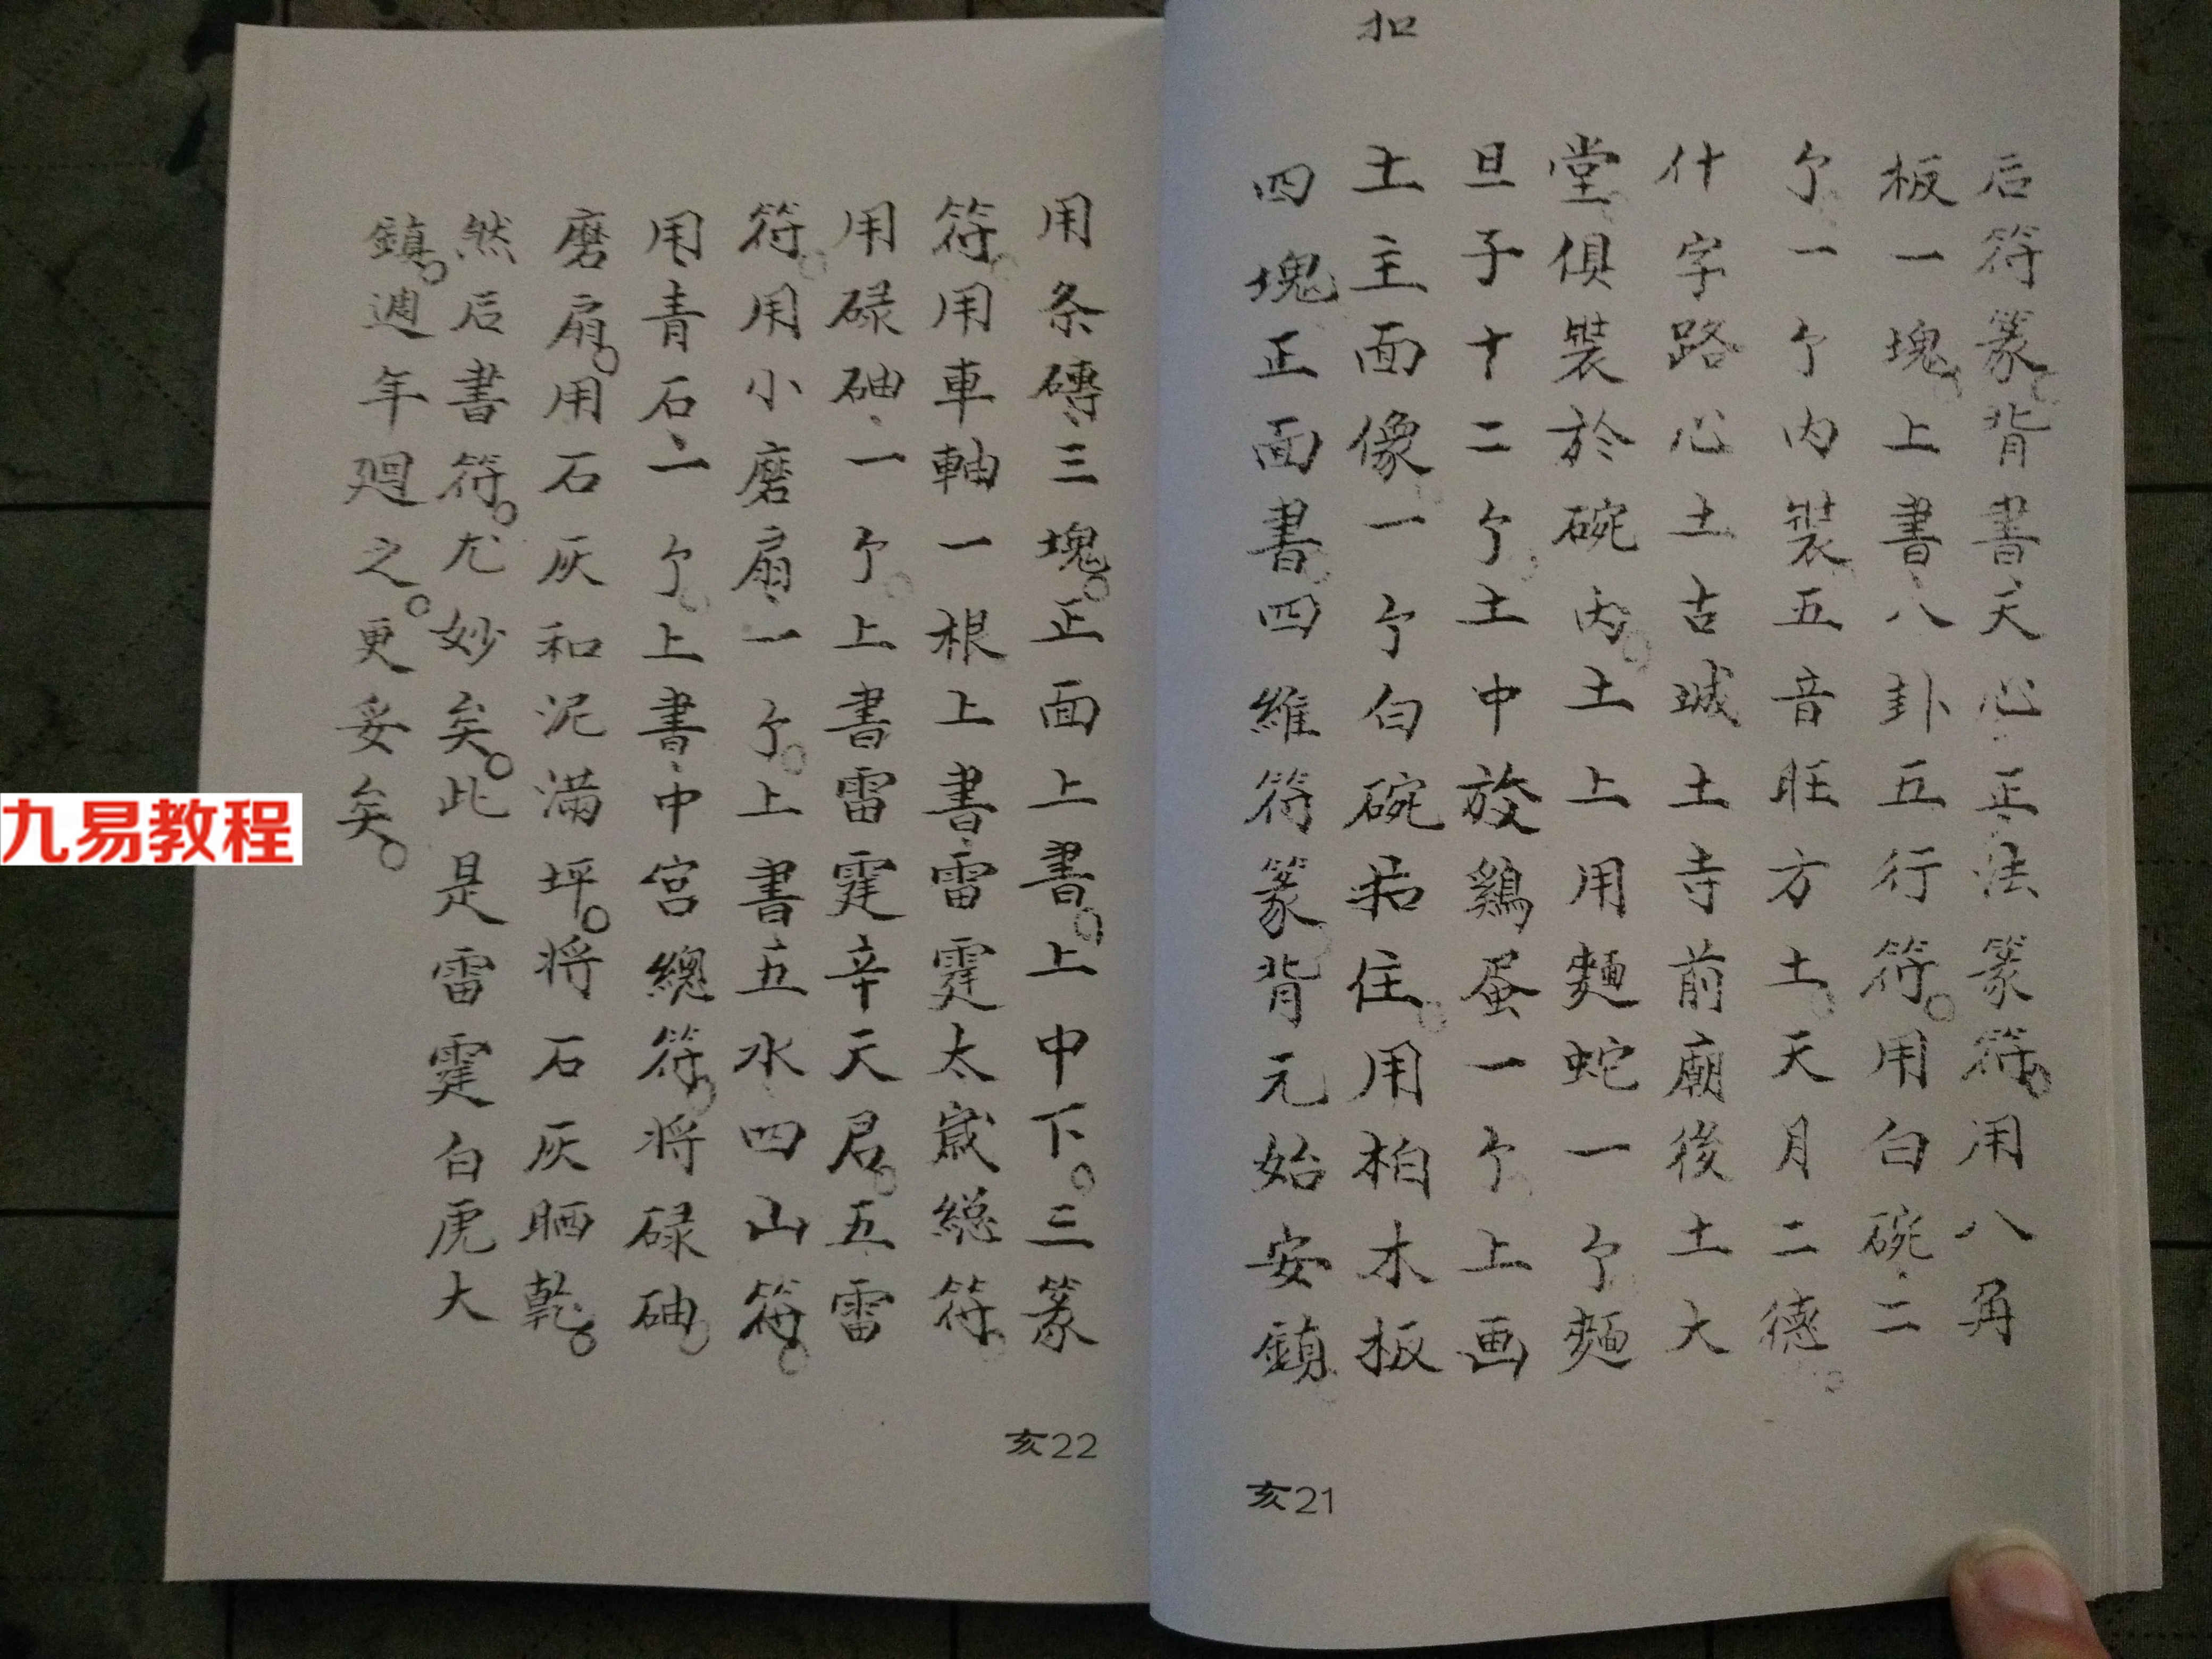 扣
后符篆。背書天心正法篆符。用八角
板一塊。上書八卦五行符。用白碗二
个。一个内裝五音旺方土。天月二德。
什字路心土古城土寺前廟後土大
堂。俱裝於碗内。土上用麵蛇一个麵
旦子十二个。土中放鷄蛋一个。上画
土主面像。一个白碗扣住。用柏木板
四塊正面書。四維符篆。背元始安鎮。
亥21
用条磚三塊。正面上書。上中下。三篆
符。用車軸一根上書雷霆太歲總符。
用碌砷一个。上書雷霆辛天君。五雷
符。用小磨扇一个。上書五水四山符。
用青石一个。上書中宫總符。将碌砷。
磨扇。用石灰和泥满坪。将石灰晒乾。
然后書符。尤妙矣。此是雷霆白虎大
鎮。週年廻之。更妥矣。
亥22
九易教程